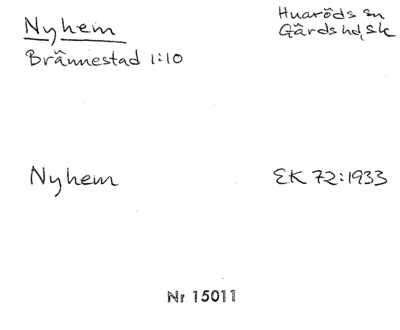 Nyhem
Brännestad 1:10
Huaröds sn
Gärds hd, Sk
Nyhem
EK 72:1933
Nr 15011